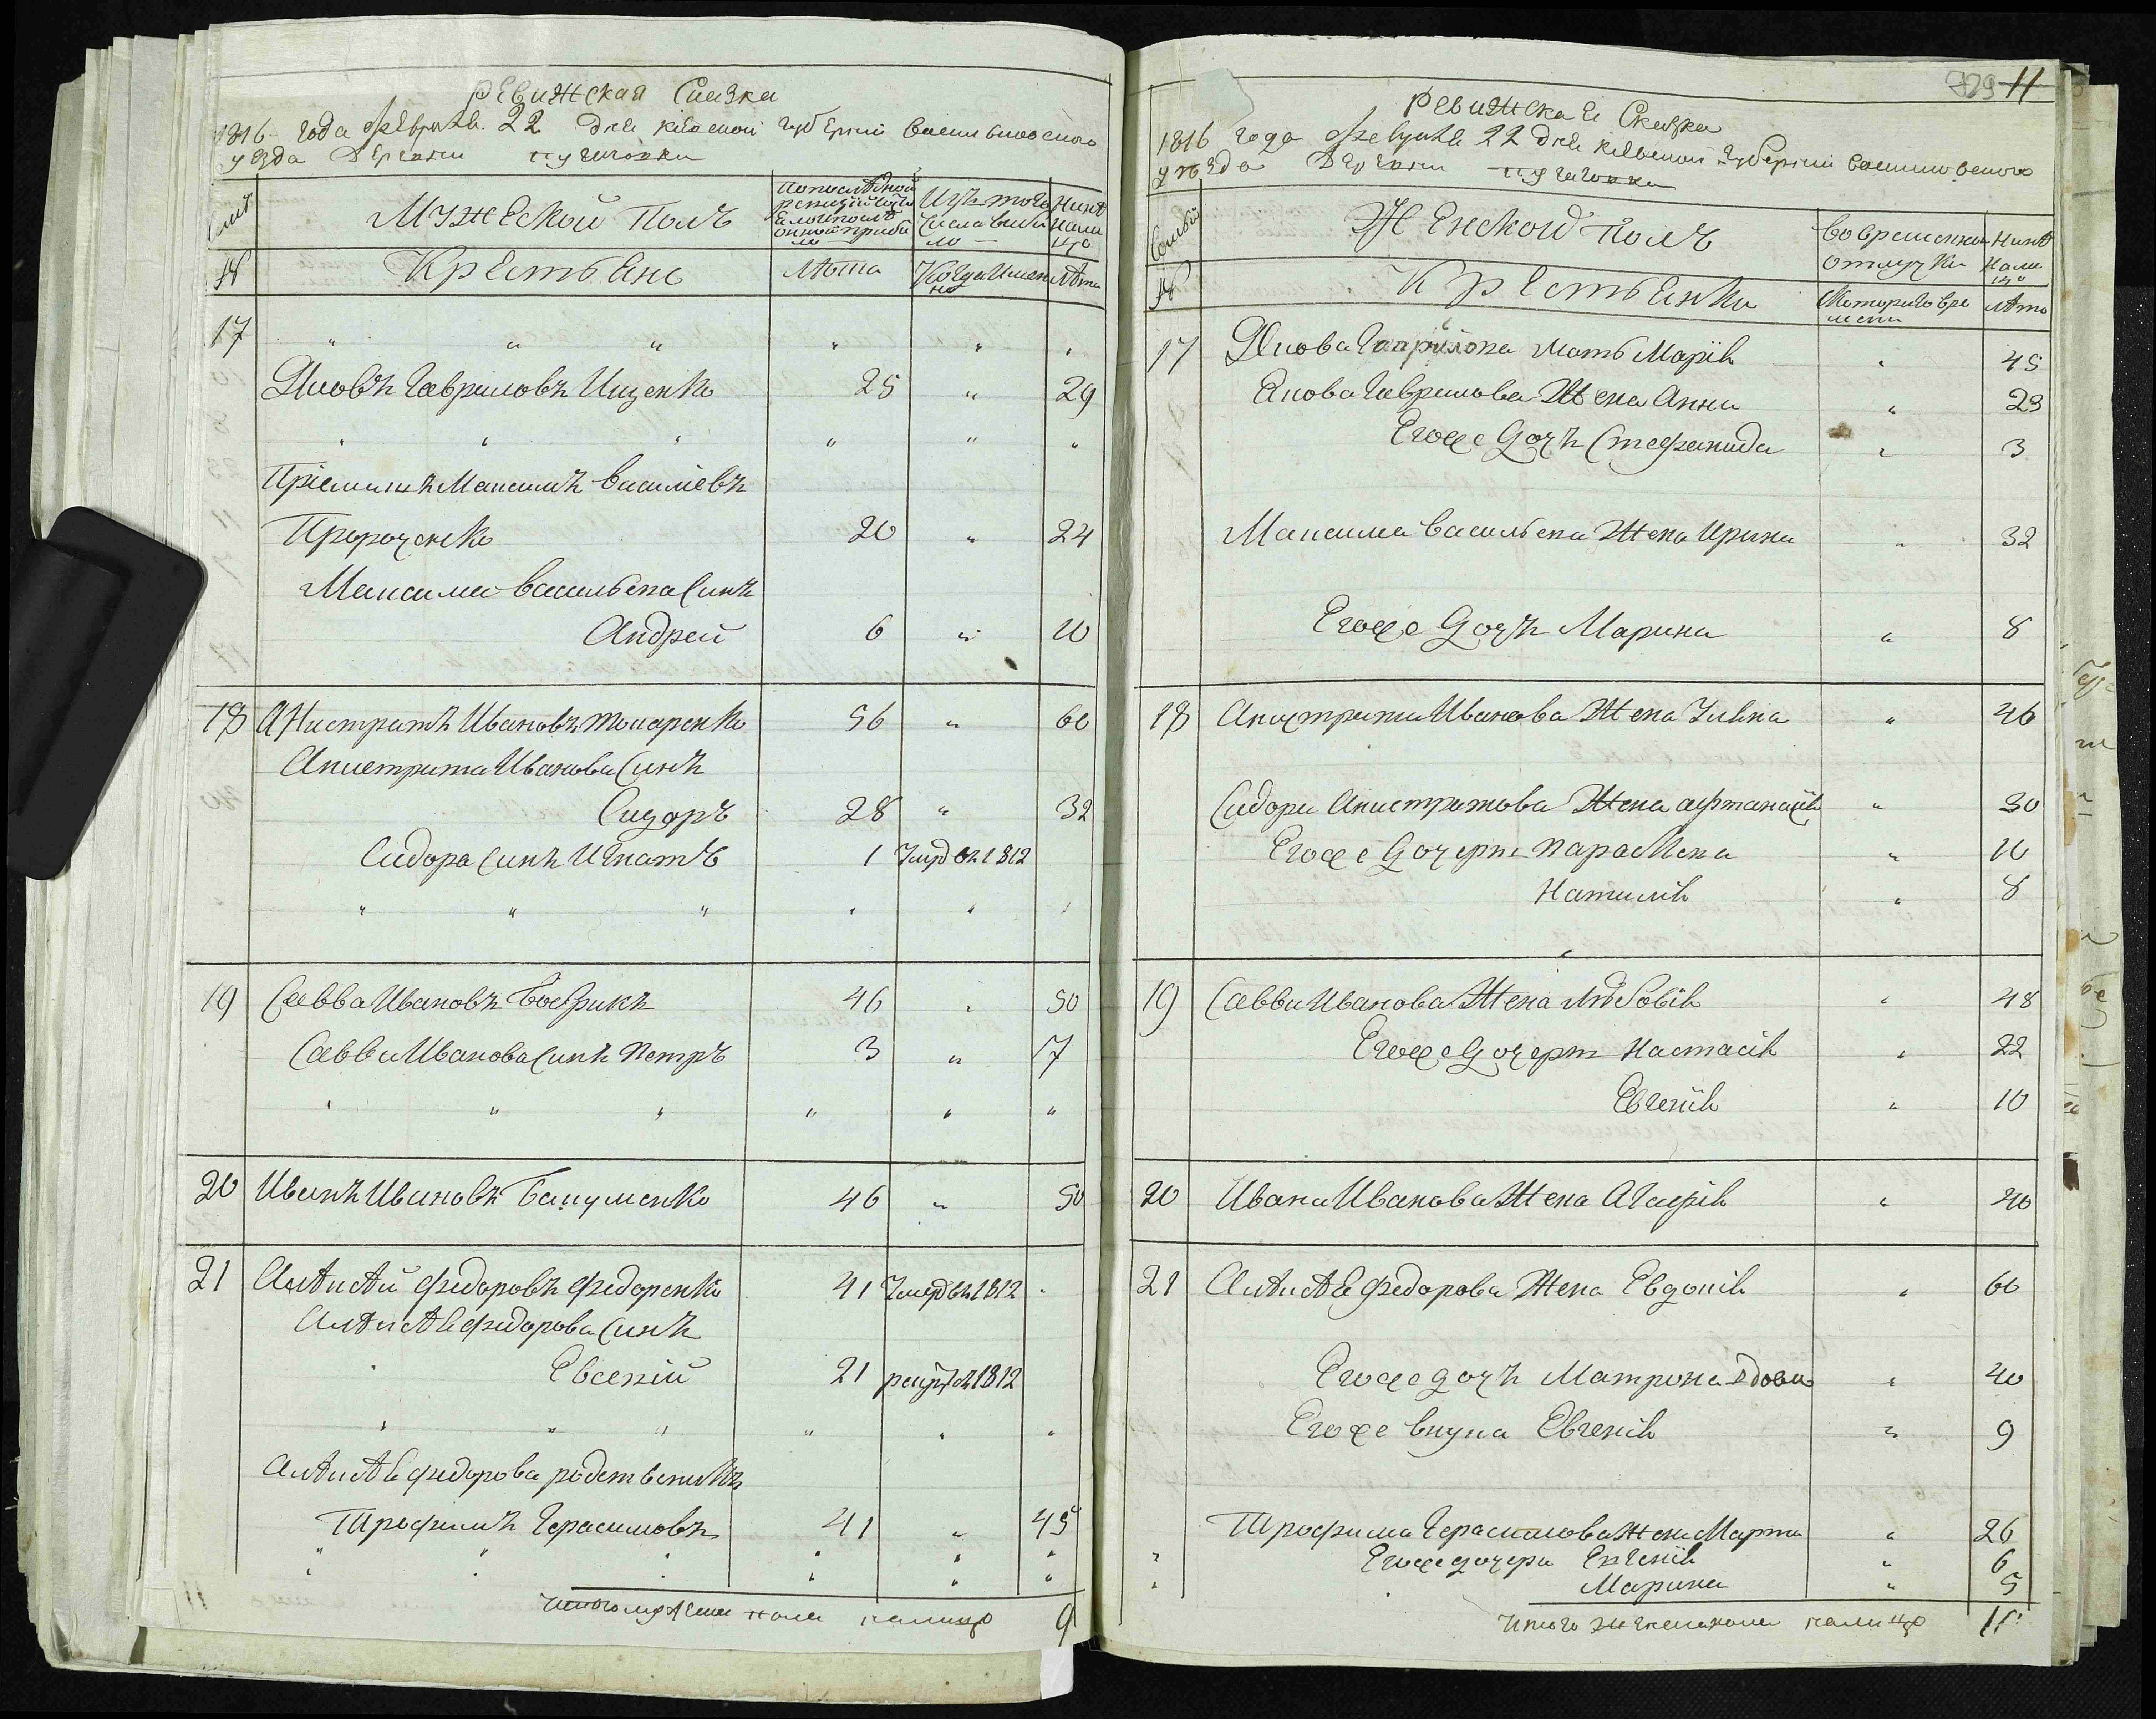 Ревижская Сказка
1816 года Февраля 22 дня Киевской губернии Васильковского
уезда Деревни
Мужеской Полъ
Изъ того числа выбыло
Ныне налицо
№
Крестьяне
Лѣта
Когда именно
Лѣта
17 " " " " " "
Яковъ Гавриловъ Ищенко 25 " 29
" " " " " "
Пріемышъ Максимъ Василіевъ
Пророченко 20 " 24
Максима Васильева Синъ
Андрей 6 " 10
18 Анистратъ Ивановъ Токаренко 56 " 60
Анистрата Иванова Синъ
Сидоръ 28 " 32
Сидора Синъ Игнатъ 1 Умр въ 1812
" " " " " "
19 Савва Ивановъ 46 " 50
Саввы Иванова Синъ Петръ 3 " 7
" " " " " "
20 Иванъ Ивановъ 46 " 50
21 Алѣксѣй Федоровъ Федоренко 41 Умер въ 1812 "
Алѣксѣя Федорова Синъ
Евсений 21 рекр въ 1812
" " " " " "
Алѣксѣя Федорова родственикъ
Трофимъ Герасимовъ 41 " 45
" " " " " "
" " " " " "
Итого мужеска пола налицо 9
729 11
Ревижская Сказка
1816 года Февраля 22 дня Киевской Губернии Васильковского
уезда Деревни
Семьи
Женской полъ
Во временной отлучки
Ныне налицо
№
Крестьянки
Которого времени
Лѣта
17 Якова Гаврилова мать Марія " 45
Якова Гаврилова Жена Анна " 29
Егоже Дочъ Стефанида " 3
Максима Васильева Жена Ирина " 32
Егоже Дочъ Марина " 8
18 Анистрата Иванова Жена Улияна " 46
Сидора Анистратова Жена " 30
Егоже Дочери Параскева " 10
Наталия " 8
"
19 Саввы Иванова Жена Любовія " 48
Егоже Дочери Настасія " 22
Евгенія " 10
20 Ивана Иванова Жена Агафія " 40
21 Алѣксѣя Федорова Жена Евдокія " 60
Егоже дочъ Матрона вдова " 40
Егоже внука Евгенія " 9
Трофима Герасимова жена Марта " 26
" Егоже дочери Евгенія " 6
" Марина " 5
Итого женска пола налицо